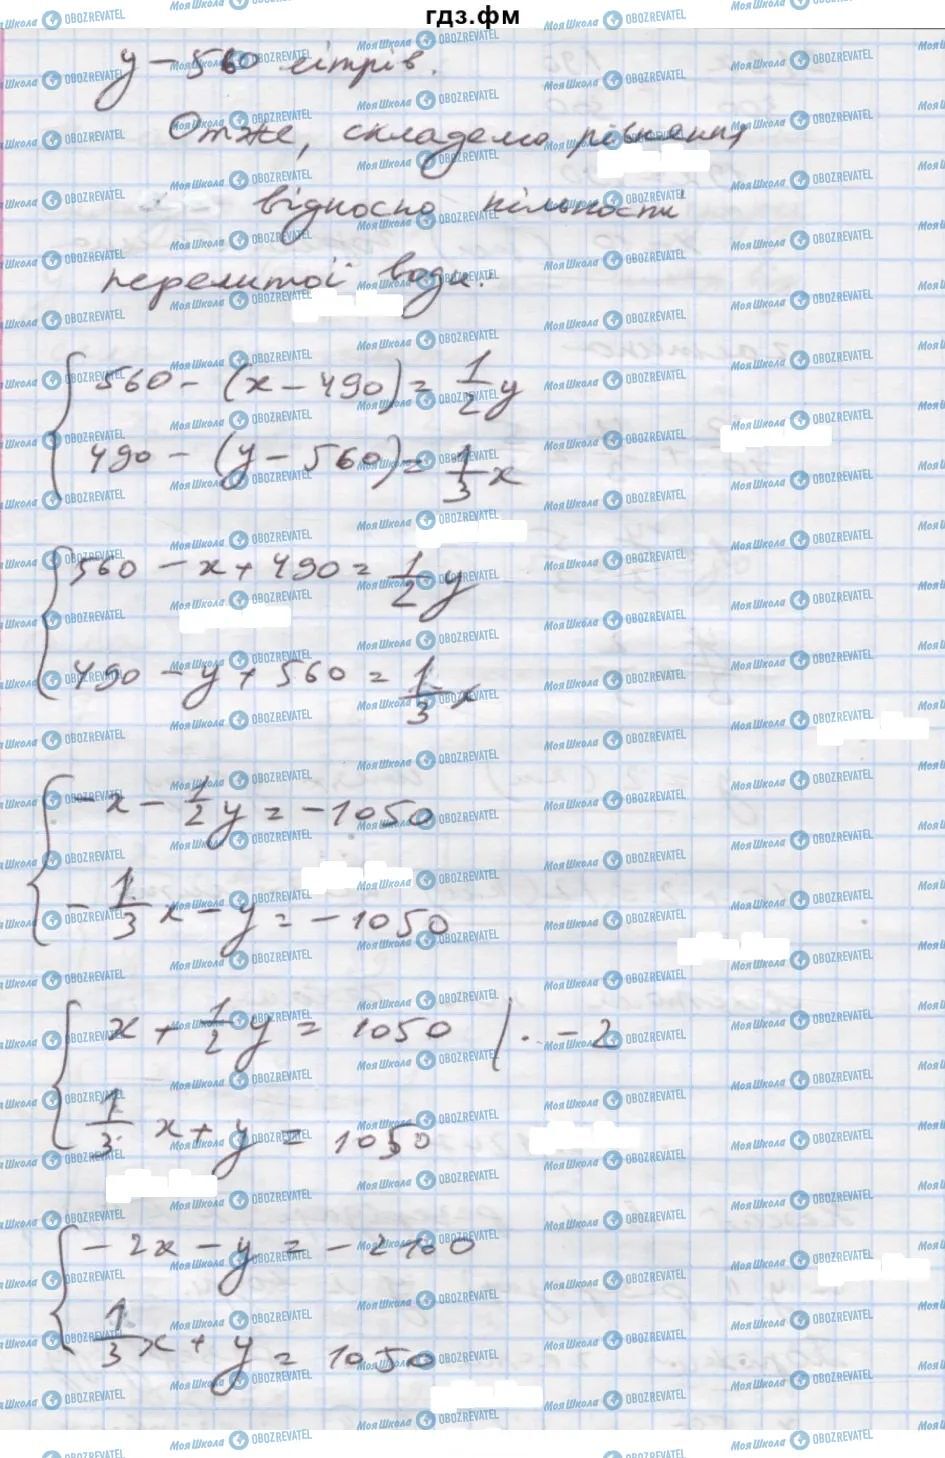 гдз.фм
y – 560 літрів.
Отже, складемо рівняння
відносно кількості
перелитої води:
560 – (x – 490) = 1/2 y
490 – (y – 560) = 1/3 x
560 – x + 490 = 1/2 y
490 – y + 560 = 1/3 x
– x – 1/2 y = – 1050
– 1/3 x – y = – 1050
x + 1/2 y = 1050 | · – 2
1/3 x + y = 1050
– 2x – y = – 2100
1/3 x + y = 1050
МояШкола OBOZREVATEL